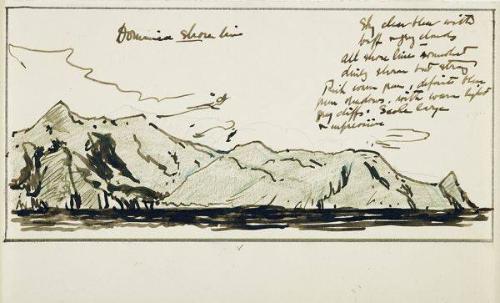 Dominica shore line
Sky clear blue with
buff & grey clouds
all shore line somewhat
dimly shown but strong
Rich warm green, definite blue
green shadows. with warm light
grey cliffs. Scale large
& impressive